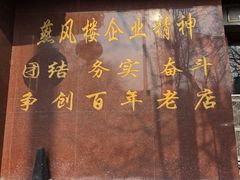 燕风楼企业精神
团结 务实 奋斗
争创百年老店